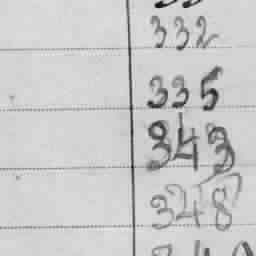 332
335
343
348